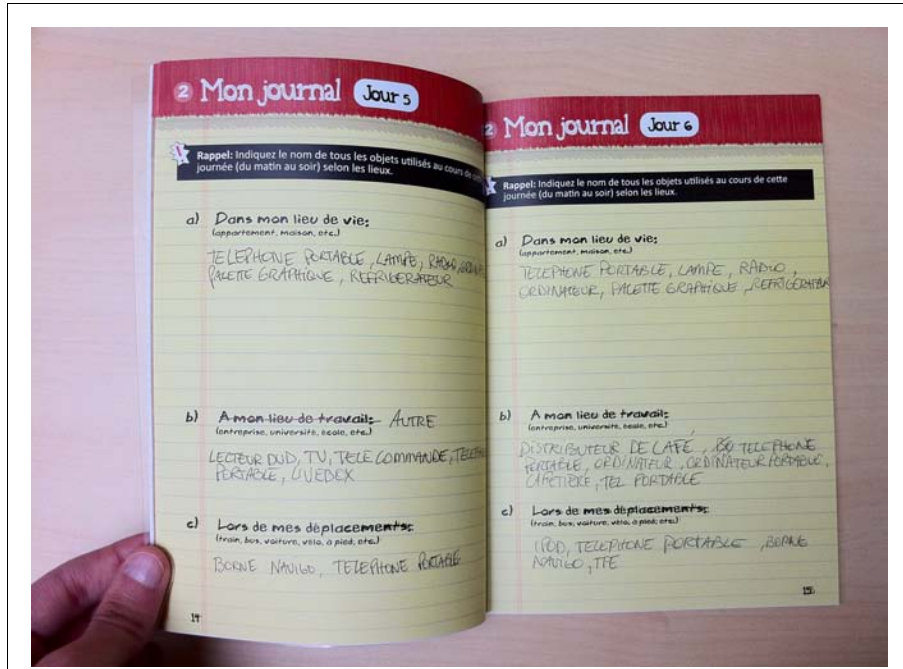 2 Mon journal Jour 5
Rappel: Indiquez le nom de tous les objets utilisés au cours de
journée (du matin au soir) selon les lieux.
a) Dans mon lieu de vie:
(appartement, maison, etc.)
TELEPHONE PORTABLE, LAMPE, RADIO,
PALETTE GRAPHIQUE, REFRIGERATEUR
b) A mon lieu de travail: AUTRE
(entreprise, université, école, etc.)
LECTEUR DVD, TV, TELECOMMANDE,
PORTABLE, LIVEBOX
c) Lors de mes déplacements:
(train, bus, voiture, vélo, à pied, etc.)
BORNE NAVIGO, TELEPHONE PORTABLE
14
2 Mon journal Jour 6
Rappel: Indiquez le nom de tous les objets utilisés au cours de cette
journée (du matin au soir) selon les lieux.
a) Dans mon lieu de vie:
(appartement, maison, etc.)
TELEPHONE PORTABLE, LAMPE, RADIO,
ORDINATEUR, PALETTE GRAPHIQUE, REFRIGERATEUR
b) A mon lieu de travail:
(entreprise, université, école, etc.)
DISTRIBUTEUR DE CAFE, TELEPHONE
PORTABLE, ORDINATEUR, ORDINATEUR PORTABLE,
CAFETIERE, TEL PORTABLE
c) Lors de mes déplacements:
(train, bus, voiture, vélo, à pied, etc.)
IPOD, TELEPHONE PORTABLE, BORNE
NAVIGO, TPE
15